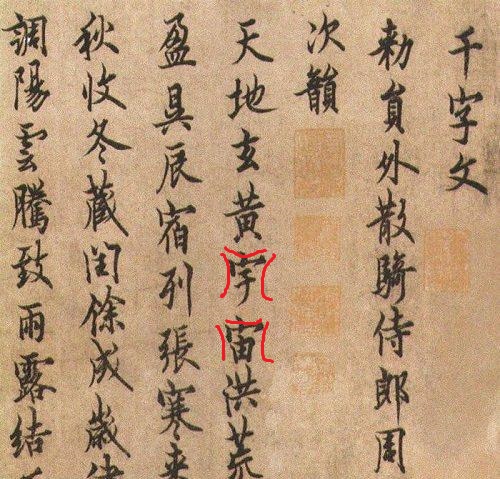 千字文
勑員外散騎侍郎周
次韻
天地玄黃宇宙洪荒
盈昃辰宿列張寒來
秋收冬藏閏餘成歲律
調陽雲騰致雨露結